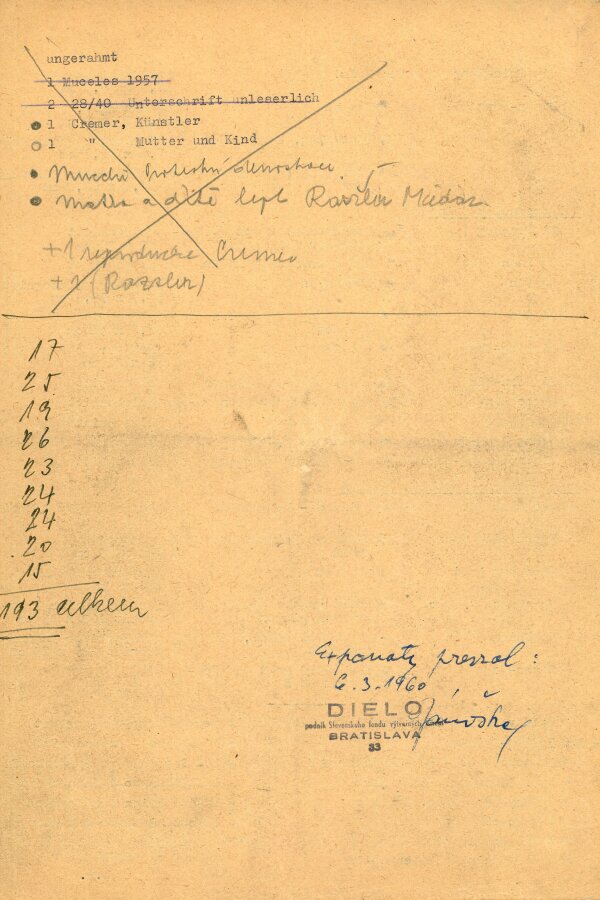 ungerahmt
1 Muceles 1957
2 28/40 Unterschrift unleserlich
1 Cremer, Künstler
1 " Mutter und Kind
Mucchi
Matka a dítě lept
+ 1 reprodukce Cremer
+ 1
17
25
19
26
23
24
24
20
15
193 celkem
Exponaty prevzal :
6.3.1960
DIELO
podnik Slovenského fondu výtvarných umení
BRATISLAVA
33